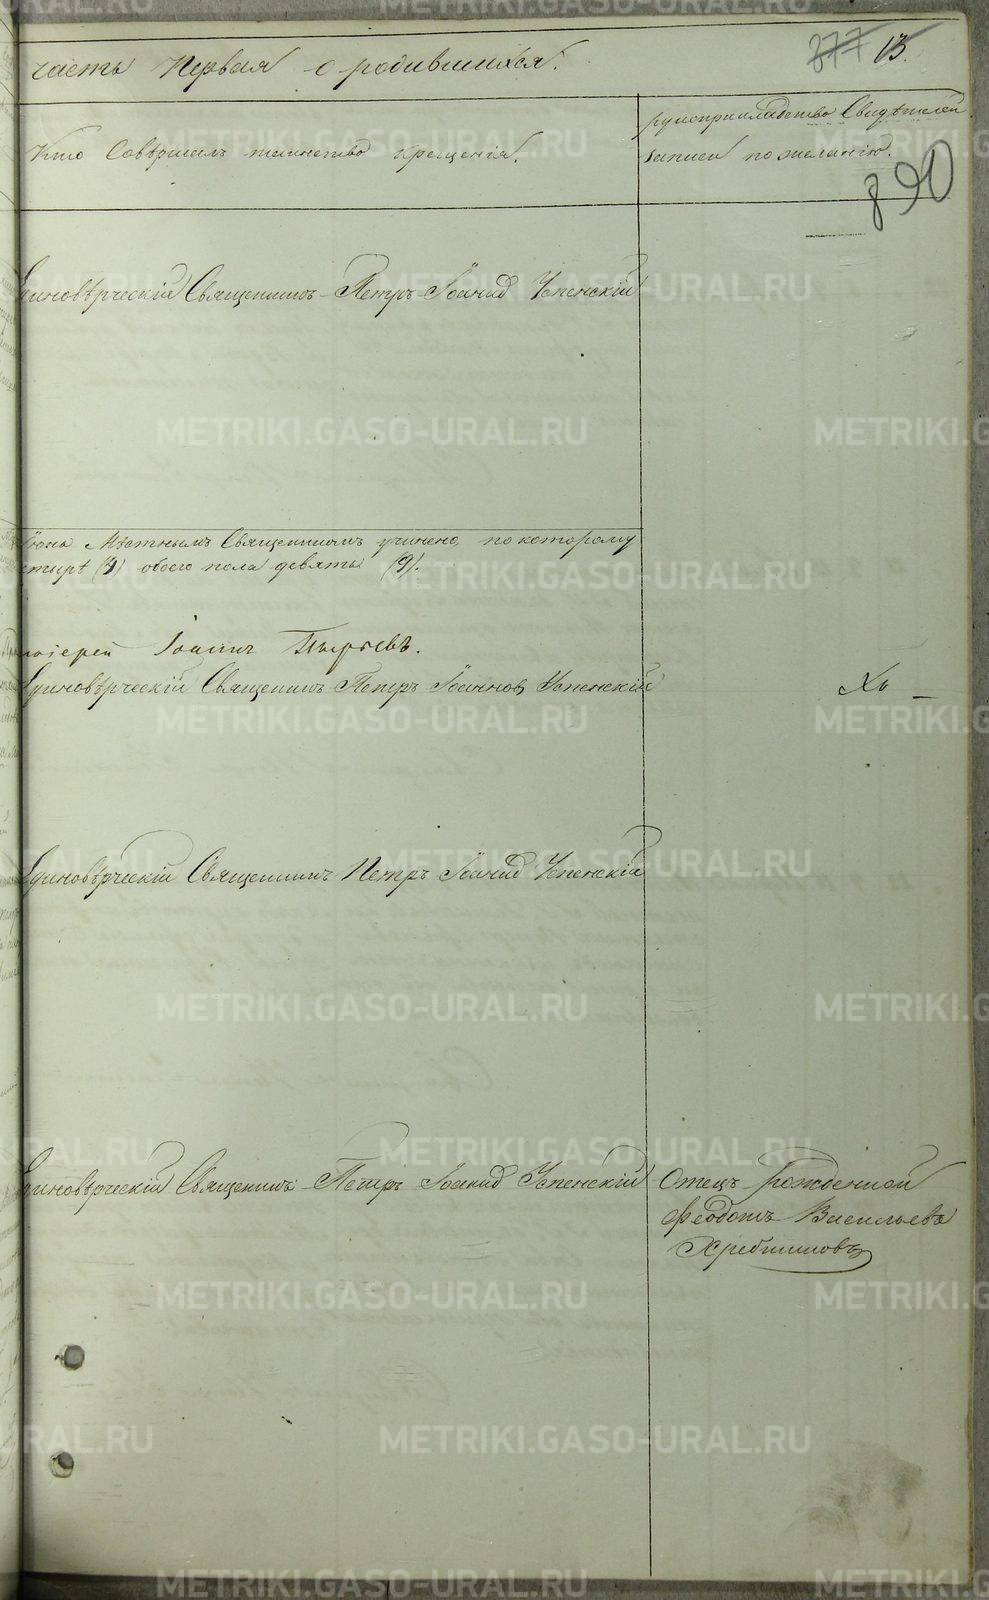 часть Первая о родившихся.
877 13.
Кто Совершалъ таинство крещенія.
рукоприкладство Свидѣтелей
записи по желанію.
890
Единовѣрческій Священникъ Петръ Іоанновъ Успенскій
Іюня Мѣстнымъ Священникомъ учинено, по которому
четыре (4) обоего пола девять (9).
Протоіерей Іоаннъ
Единовѣрческій Священникъ Петръ Іоанновъ Успенскій
Единовѣрческій Священникъ Петръ Іоанновъ Успенскій
Единовѣрческій Священникъ Петръ Іоанновъ Успенскій
Отецъ Рожденной
Феодотъ Васильевъ
METRIKI.GASO-URAL.RU